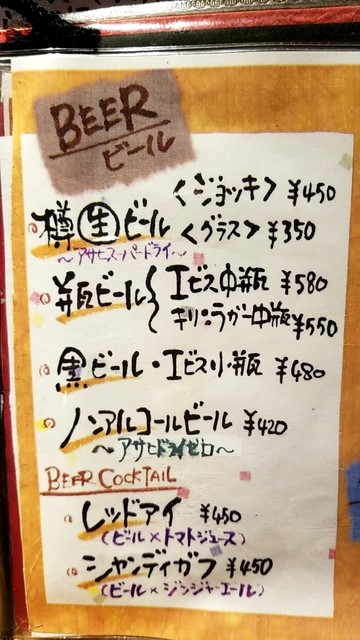 BEER
ビール
〈ジョッキ〉 ¥450
樽生ビール 〈グラス〉 ¥350
〜アサヒスーパードライ〜
瓶ビール { エビス中瓶 ¥580
キリンラガー中瓶 ¥550
黒ビール・エビス小瓶 ¥480
ノンアルコールビール ¥420
〜アサヒドライゼロ〜
BEER COCKTAIL
レッドアイ ¥450
(ビール×トマトジュース)
シャンディガフ ¥450
(ビール×ジンジャーエール)